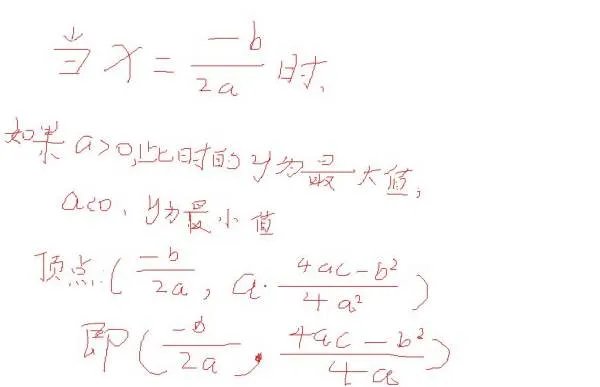 当 x = -b/2a 时,
如果 a>0,此时的 y为最大值,
a<0, y为最小值
顶点:(-b/2a, a·(4ac-b²)/4a²)
即(-b/2a, (4ac-b²)/4a)